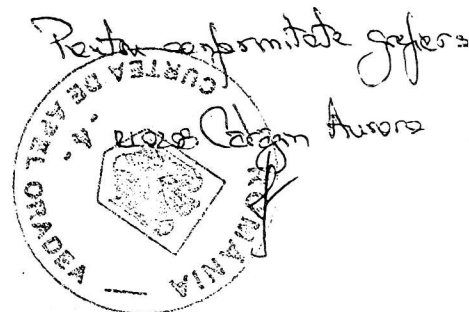 Pentru conformitate grefier:
Aurora
ROMANIA
CURTEA DE APEL ORADEA